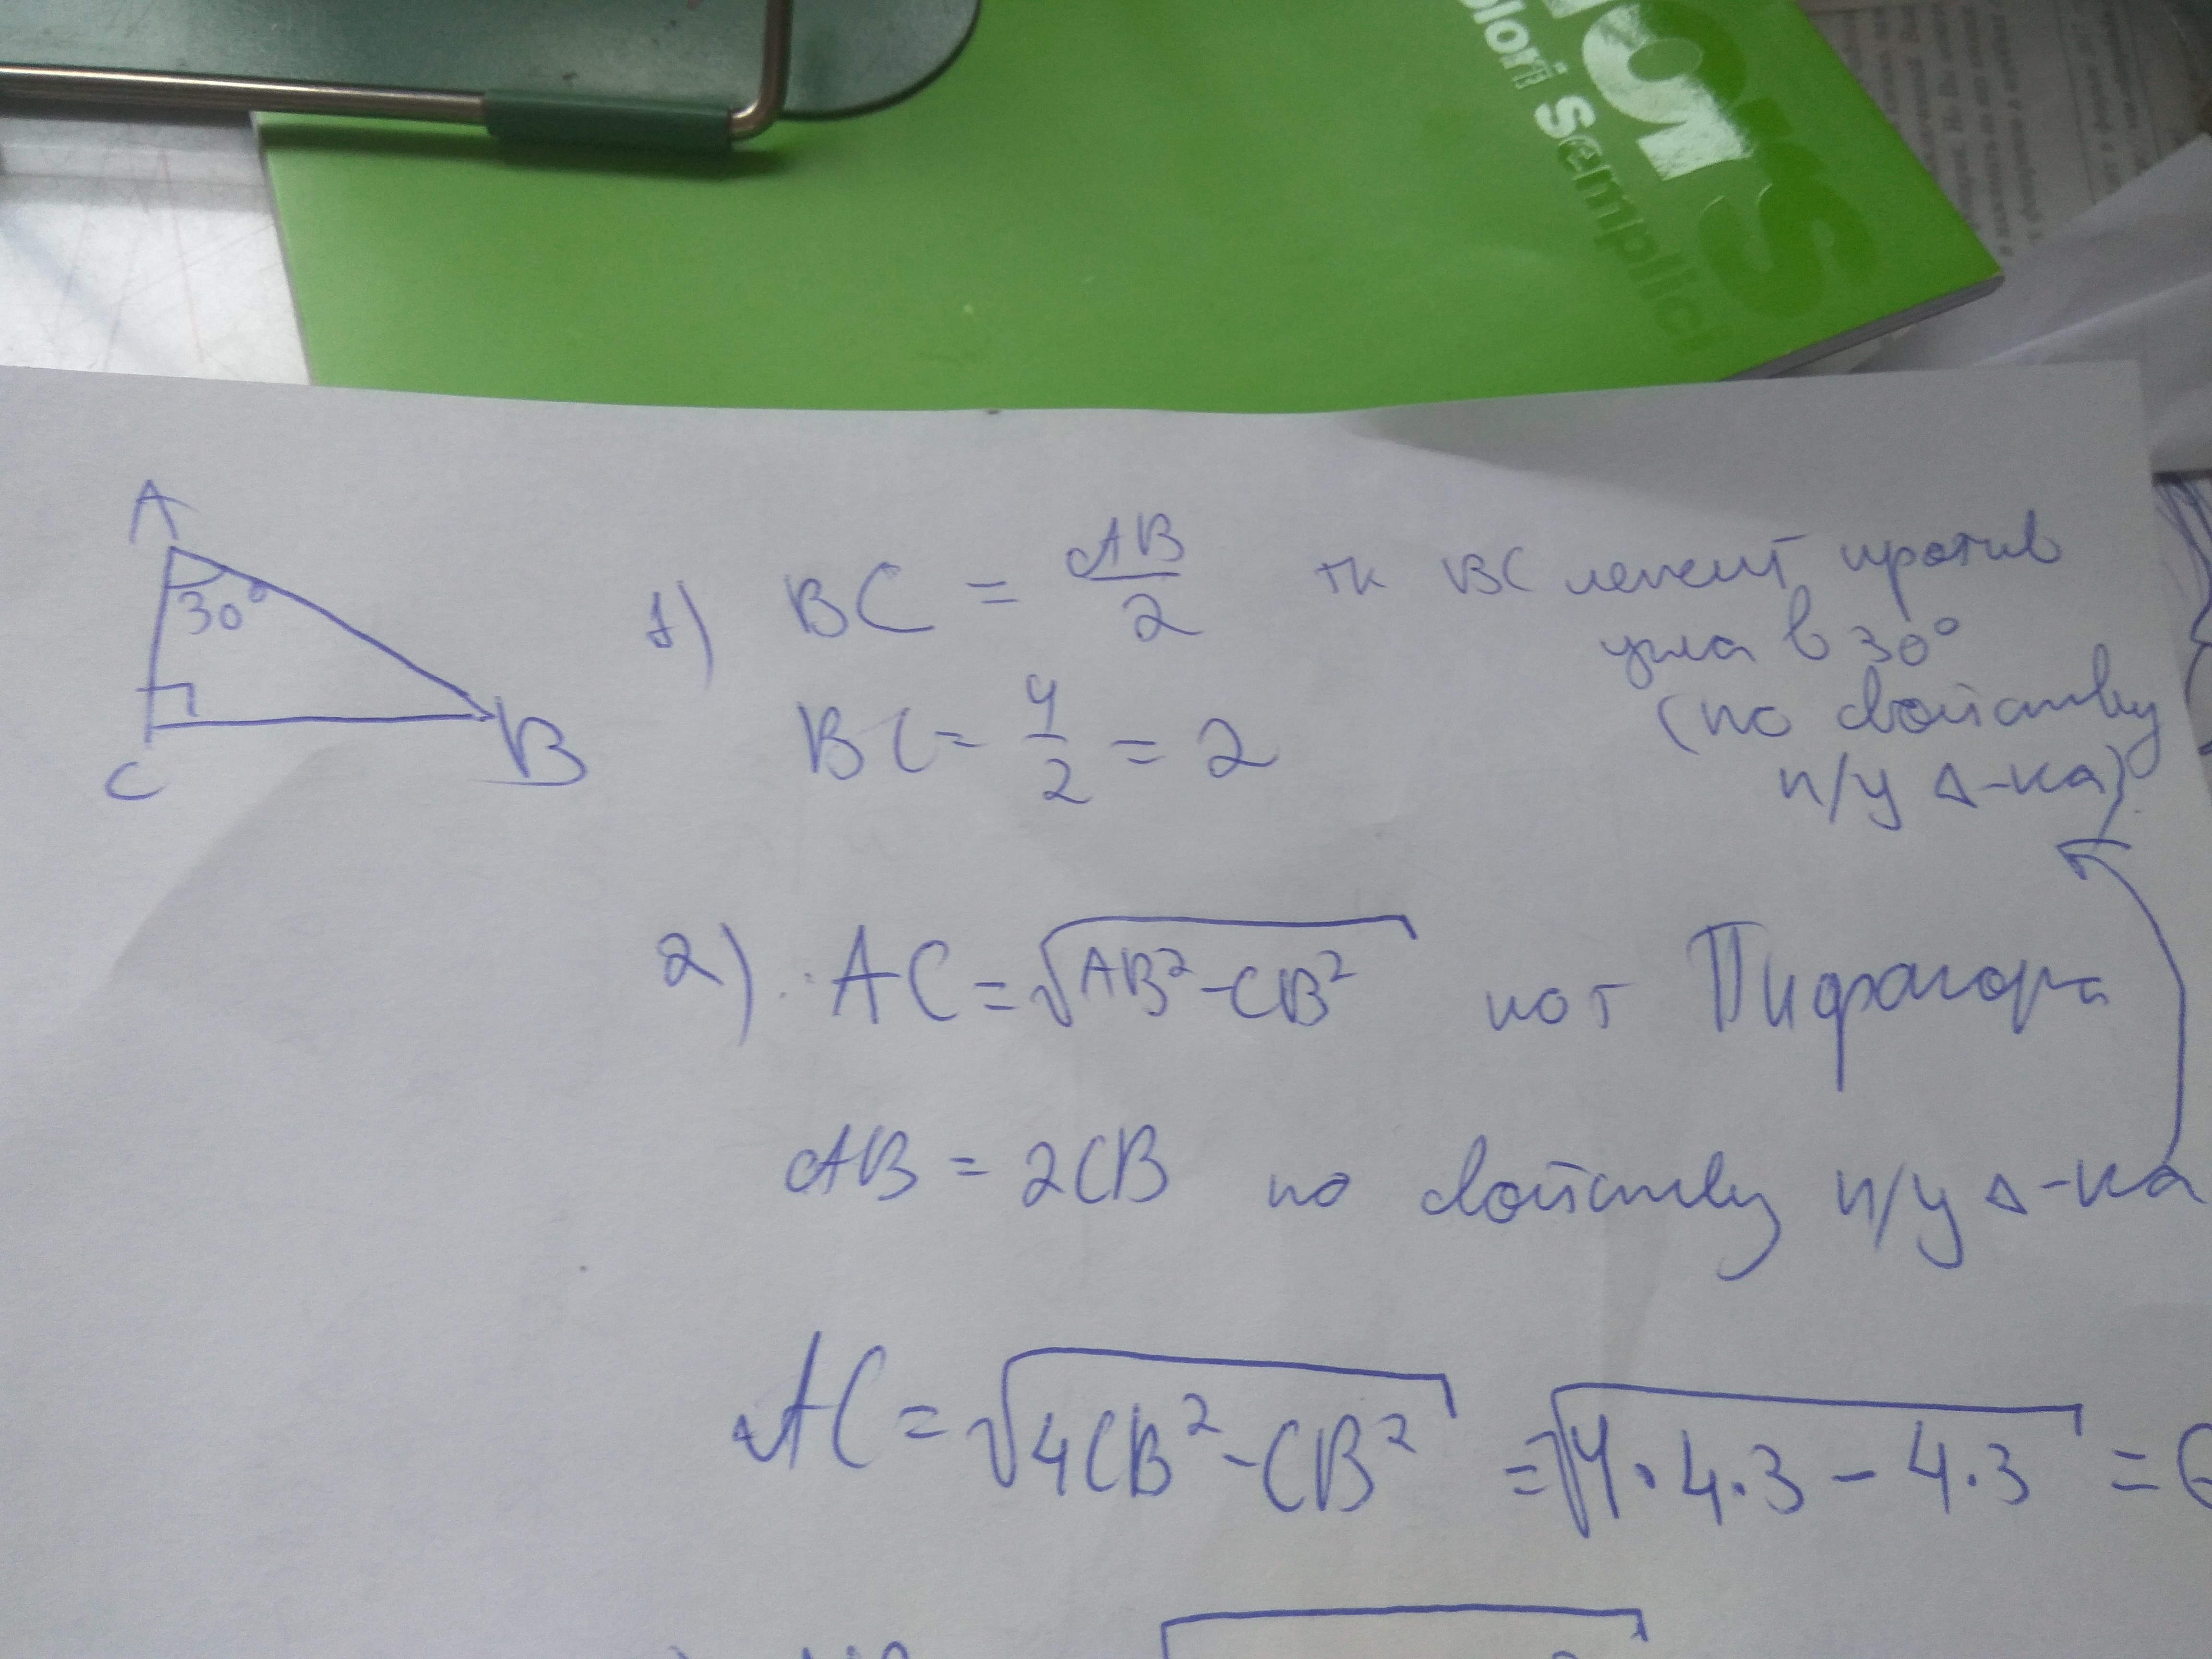 olori Semplici
A
30°
C
B
1) BC = AB/2 тк BC лежит против
угла в 30°
(по свойству
п/у Δ-ка)
BC = 4/2 = 2
2) AC = √(AB² - CB²) по т Пифагора
AB = 2CB по свойству п/у Δ-ка
AC = √(4CB² - CB²) = √(4·4·3 - 4·3) = 6